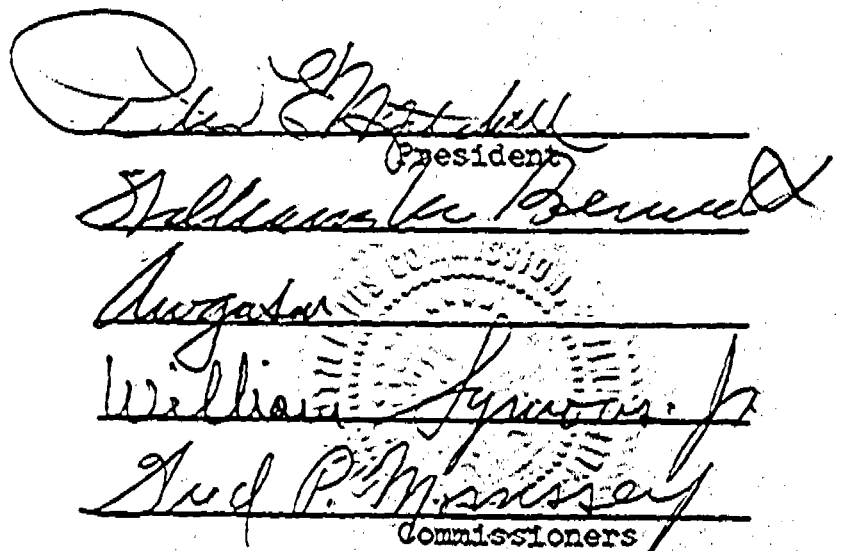 Peter E. Mitchell
President
William M. Bennett
William Symons. Jr
Fred P. Morrissey
Commissioners